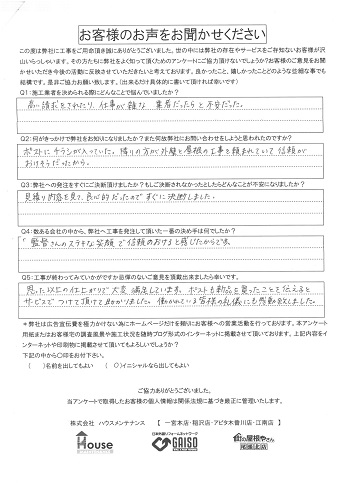 お客様のお声をお聞かせください
この度は弊社に工事をご用命頂き誠にありがとうございました。世の中には弊社の存在やサービスをご存知ないお客様が沢
山いらっしゃいます。その方たちに弊社をよく知って頂くためのアンケートにご協力頂けないでしょうか?お客様のご意見をお聞
かせいただき今後の活動に反映させていただきたいと考えております。良かったこと、嬉しかったことどのような些細な事でも
結構です。是非ご協力お願い致します。(出来るだけ具体的に書いて頂ければ幸いです)
Q1:施工業者を決められる際にどんなことに悩んでいましたか?
高い請求をされたり、仕事が雑な 業者だったらと不安だった。
Q2:何がきっかけで弊社をお知りになりましたか?また何故弊社にお問い合わせをしようと思われたのですか?
ポストにチラシが入っていた。隣りの方が外壁と屋根の工事を頼まれていて信頼が
おけそうだったから。
Q3:弊社への発注をすぐにご決断頂けましたか?もしご決断されなかったとしたらどんなことが不安になりましたか?
見積り内容を見て、良心的だったのですぐに決断しました。
Q4:数ある会社の中から、弊社へ工事を発注して頂いた一番の決め手は何でしたか?
「監督さんのステキな笑顔」で信頼のおけると感じたからです。
Q5:工事が終わってみていかがですか忌憚のないご意見を頂戴出来ましたら幸いです。
思った以上の仕上がりで大変 満足しています。ポストも新品を買ったことを伝えると
サービスでつけて頂けて助かりました。働かれている皆様の礼儀にも感動致しました。
*弊社は広告宣伝費を極力かけない為にホームページだけを頼りにお客様への営業活動を行っております。本アンケート
用紙またはお客様宅の調査風景や施工状況を随時ブログ形式のインターネットに掲載させて頂いております。上記内容をイ
ンターネットや印刷物に掲載させて頂いてもよろしいでしょうか?
下記の中から〇印をお付け下さい。
( )名前を出してもよい ( 〇 )イニシャルなら出してもよい
ご協力ありがとうございました。
当アンケートで取得したお客様の個人情報は関係法規に基づき厳正に管理いたします。
株式会社 ハウスメンテナンス 【 一宮本店・稲沢店・アピタ木曽川店・江南店 】
House
日本外装リフォームネットワーク
GAISO
街の屋根やさん